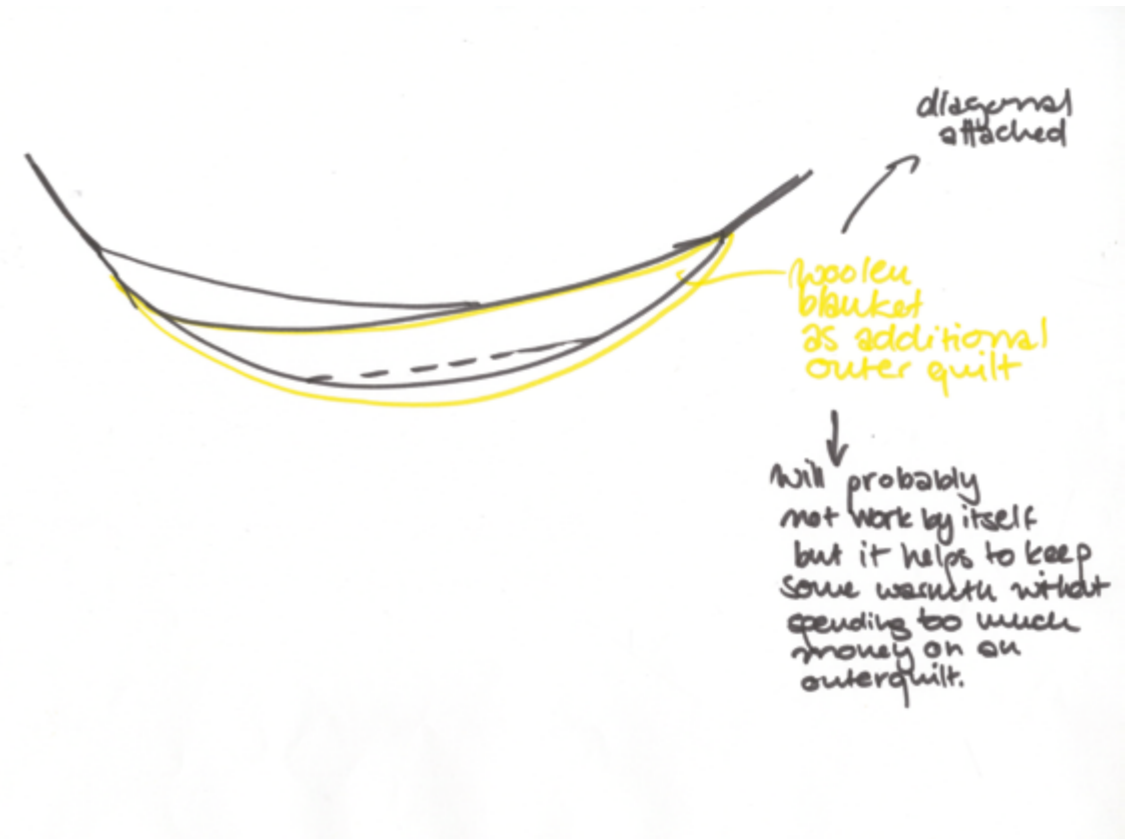 diagonal
attached
woolen
blanket
as additional
outer quilt
will probably
not work by itself
but it helps to keep
some warmth without
spending too much
money on an
outerquilt.